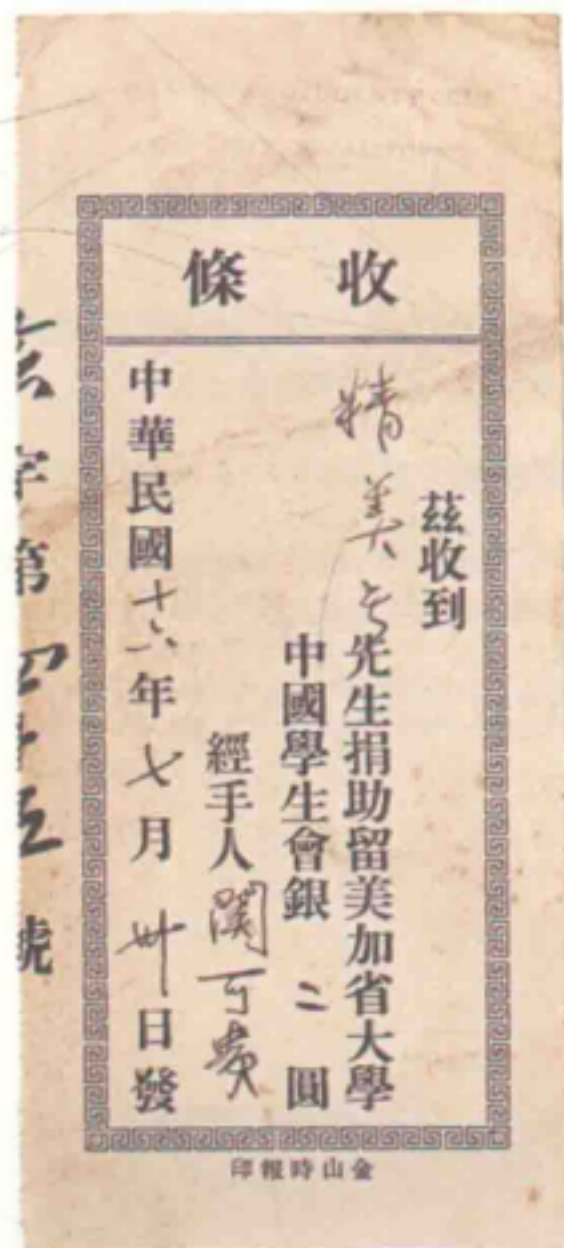 收條
茲收到
精美 先生捐助留美加省大學
中國學生會銀二圓
經手人 關可貴
中華民國十六年七月卅日發
字第四十五號
金山時報印